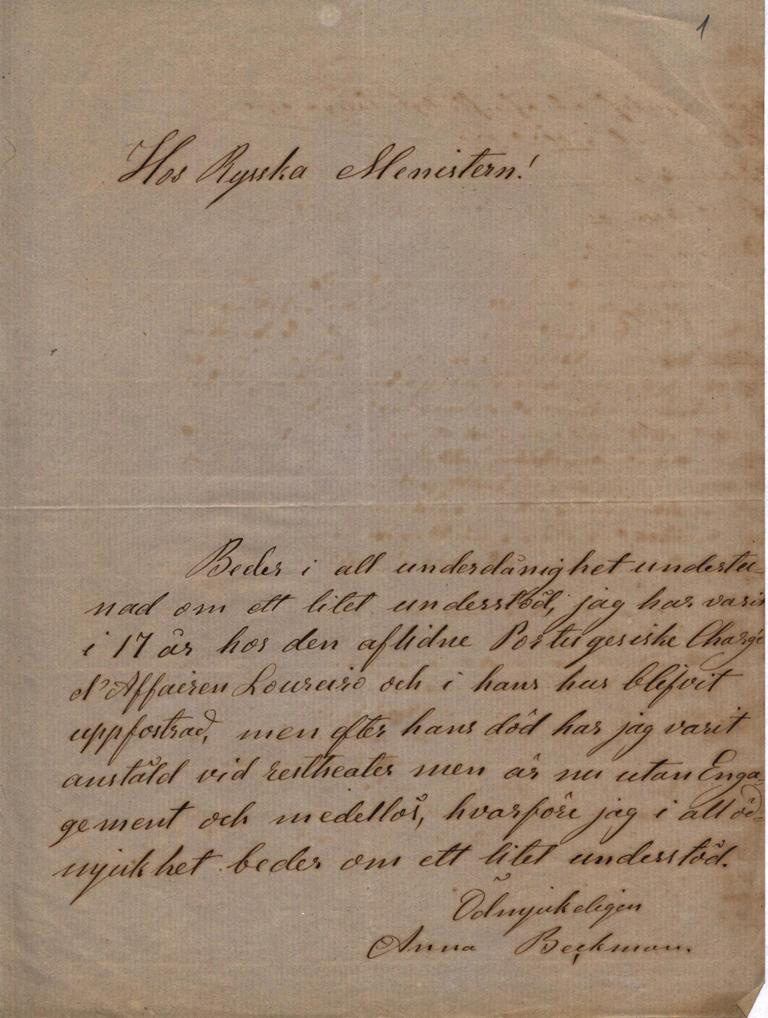 1
Hos Ryska Menistern!
Beder i all underdånighet understu-
nad om ett litet understöd, jag har varit
i 17 år hos den aflidne Portugesiske Chargé
d'Affairen Loureiro och i hans hus blifvit
uppfostrad, men efter hans död har jag varit
anstäld vid restheater men är nu utan Enga-
gement och medellös, hvarföre jag i all öd-
mjukhet beder om ett litet understöd.
Ödmjukeligen
Anna Beckman.